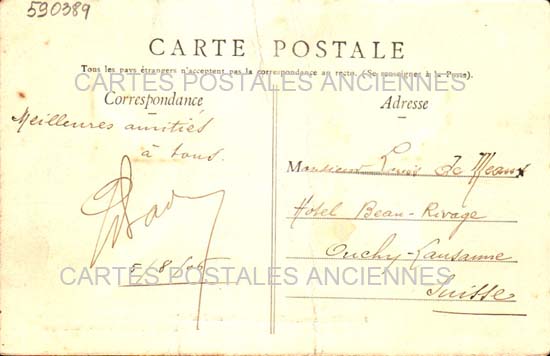 590389
CARTE POSTALE
Tous les pays étrangers n'acceptent pas la correspondance au recto. (Se renseigner à la Poste).
CARTES POSTALES ANCIENNES
Correspondance
Adresse
Meilleures amitiés
à tous.
Monsieur Louis de Meaux
Hotel Beau-Rivage
Ouchy-Lausanne
Suisse
5/8/05
CARTES POSTALES ANCIENNES